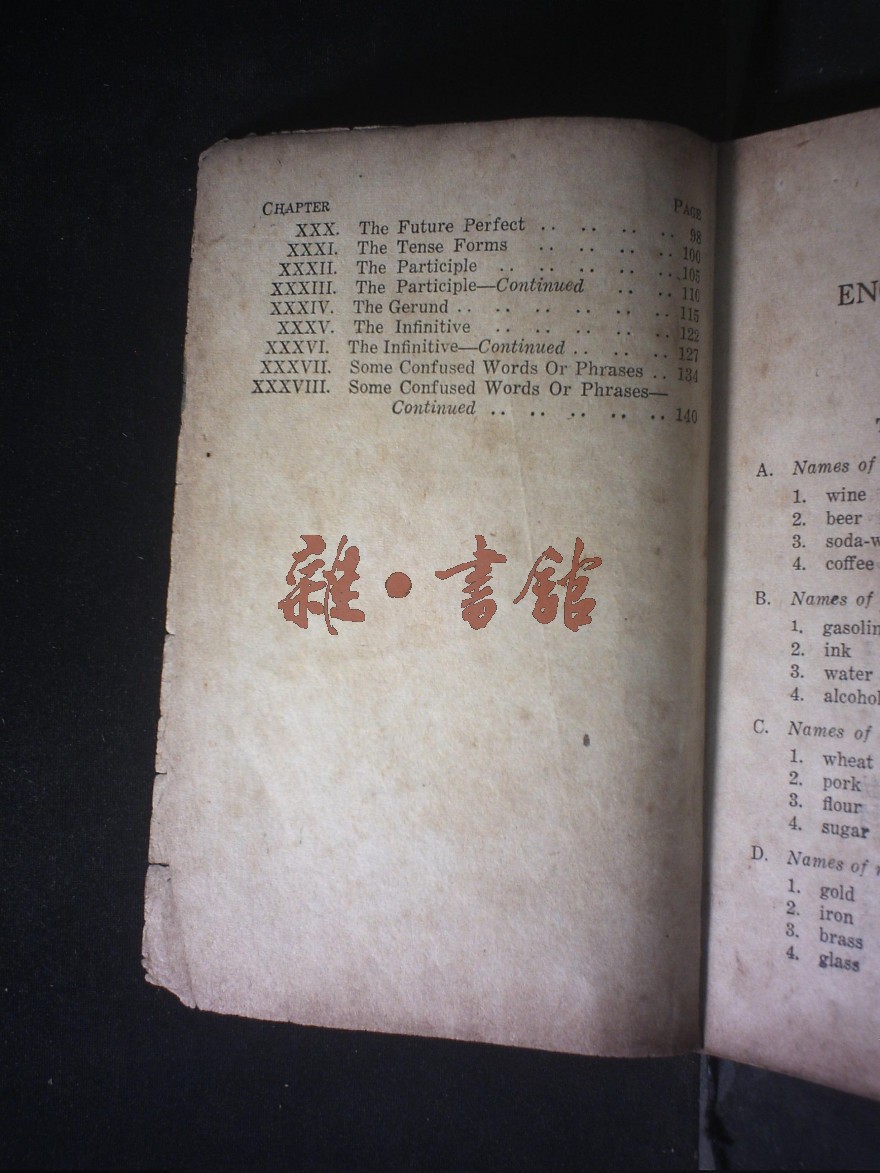 CHAPTER PAGE
XXX. The Future Perfect .. .. .. .. 98
XXXI. The Tense Forms .. .. .. .. 100
XXXII. The Participle .. .. .. .. .. 106
XXXIII. The Participle—Continued .. .. 110
XXXIV. The Gerund .. .. .. .. .. .. 115
XXXV. The Infinitive .. .. .. .. .. 122
XXXVI. The Infinitive—Continued .. .. .. 127
XXXVII. Some Confused Words Or Phrases .. 134
XXXVIII. Some Confused Words Or Phrases—
Continued .. .. .. .. .. 140
雜·書館
EN
A. Names of
1. wine
2. beer
3. soda-w
4. coffee
B. Names of
1. gasolin
2. ink
3. water
4. alcohol
C. Names of
1. wheat
2. pork
3. flour
4. sugar
D. Names of
1. gold
2. iron
3. brass
4. glass